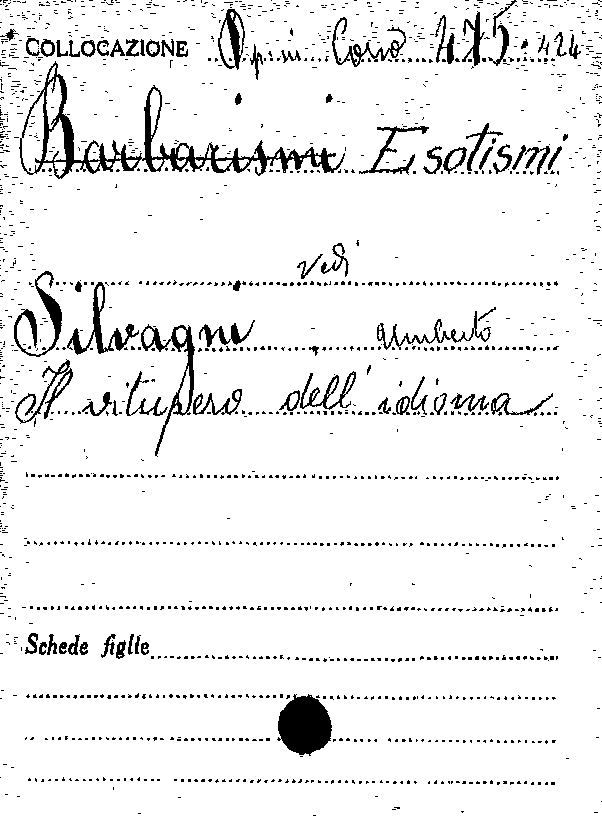 COLLOCAZIONE 475.424
Barbarismi Esotismi
vedi
Silvagni, Umberto
Il vitupero dell'idioma
Schede figlie